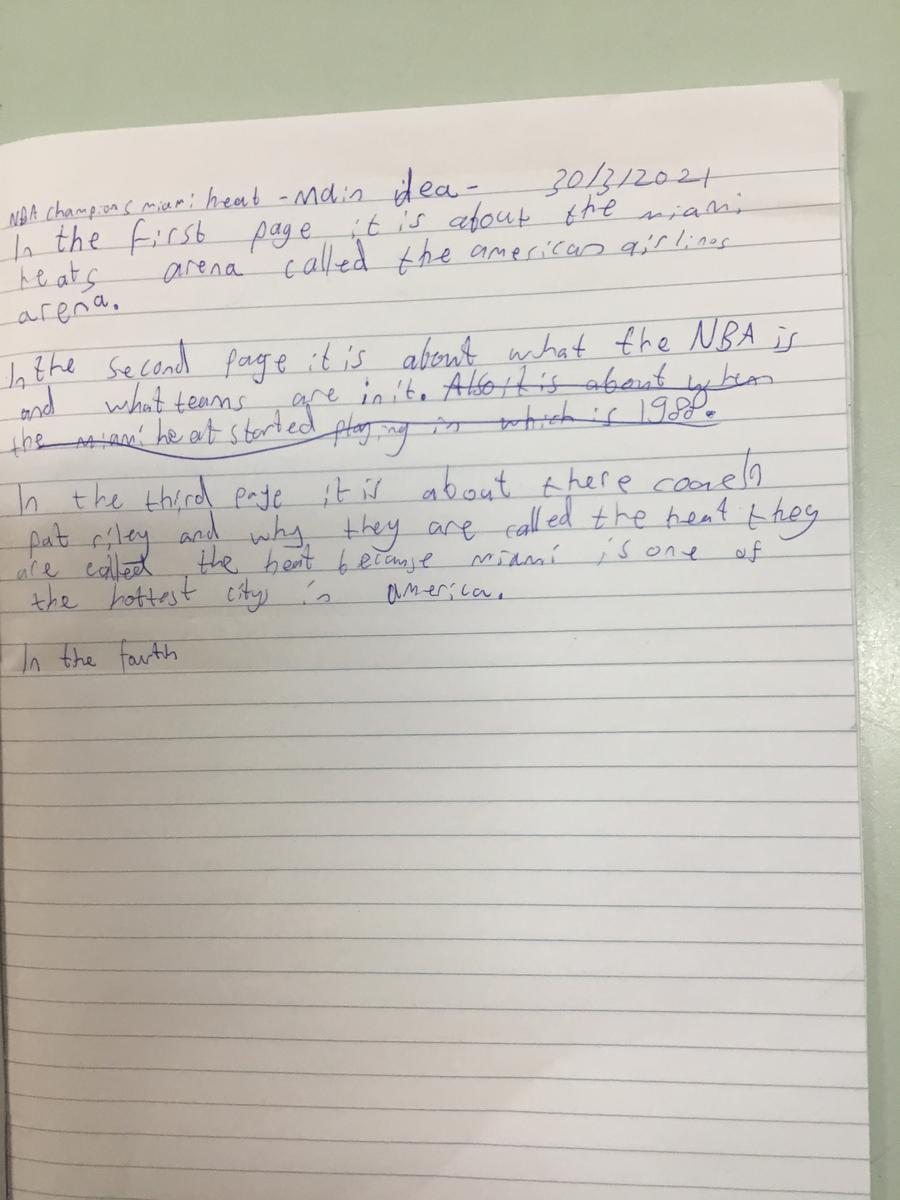 NBA champions miami heat - Main idea - 30/3/2021
In the first page it is about the miami
heats arena called the american airlines
arena.
In the second page it is about what the NBA is
and what teams are in it. Also it is about when
the miami heat started playing in which is 1988.
In the third page it is about there coach
pat riley and why they are called the heat they
are called the heat because miami is one of
the hottest citys in america.
In the fourth